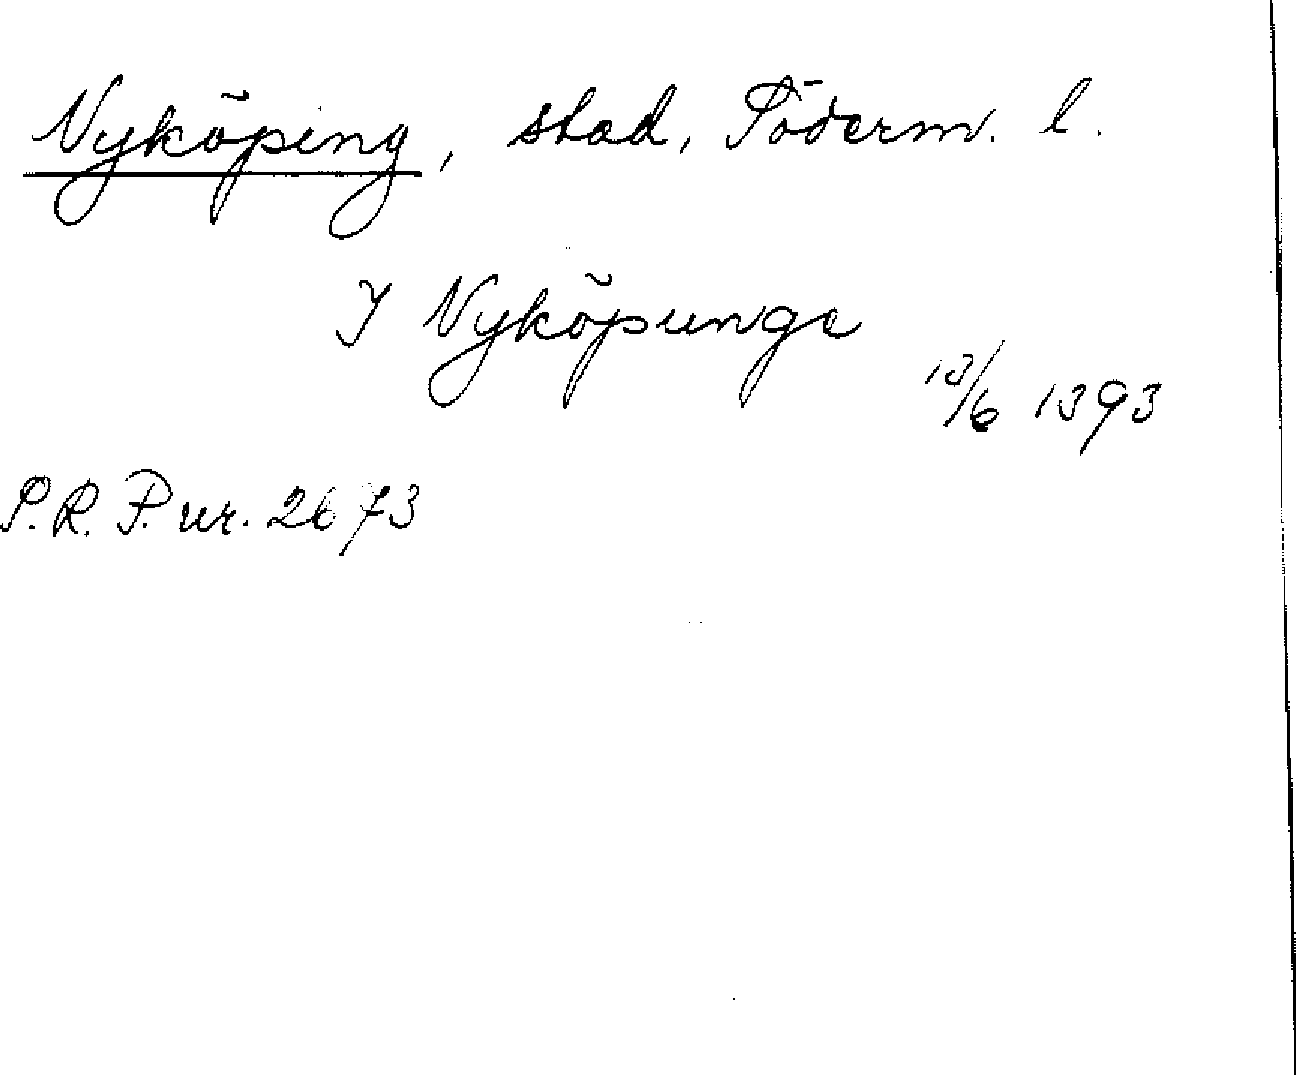 Nyköping, stad, Söderm. l.
I Nyköpunge
13/6 1393
S.R.P. nr. 2673